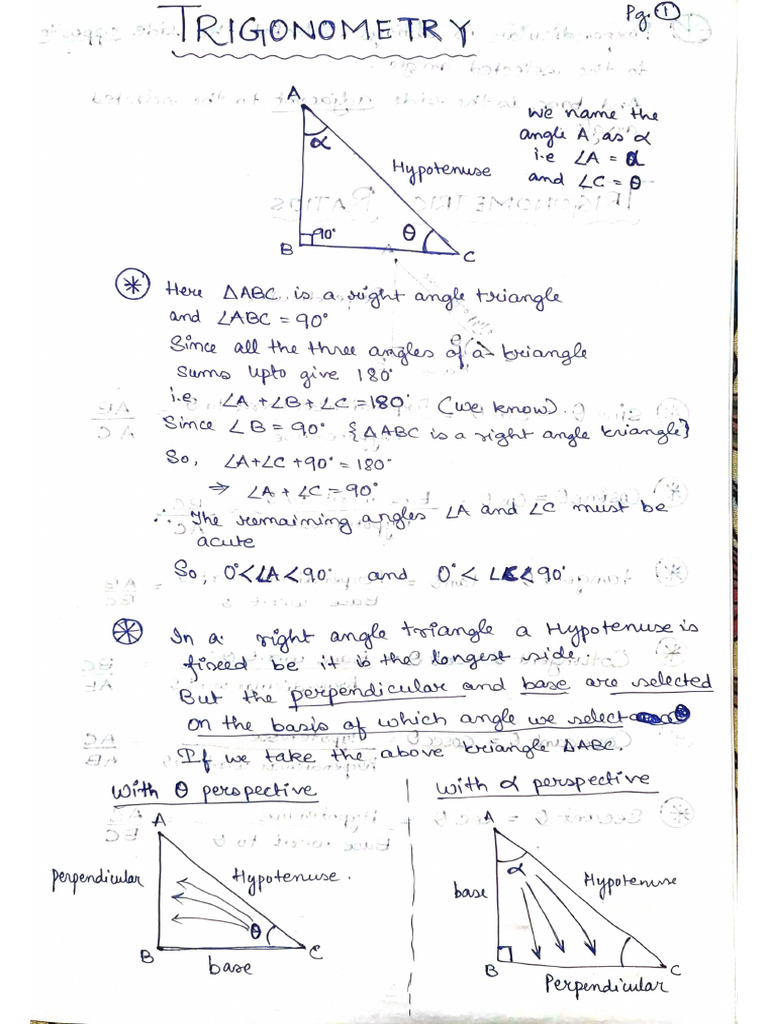 Pg. 1
TRIGONOMETRY
A
α
Hypotenuse
90°
θ
B
C
we name the
angle A, as α
i.e ∠A = α
and ∠C = θ
Here △ABC is a right angle triangle
and ∠ABC = 90°
Since all the three angles of a triangle
sums upto give 180°
i.e. ∠A + ∠B + ∠C = 180° (we know).
Since ∠B = 90° {△ABC is a right angle triangle}
So, ∠A + ∠C + 90° = 180°
⇒ ∠A + ∠C = 90°
∴ The remaining angles ∠A and ∠C must be
acute
So, 0° < ∠A < 90° and 0° < ∠C < 90°
In a right angle triangle a Hypotenuse is
fixed be it is the longest side.
But the perpendicular and base are selected
on the basis of which angle we select
If we take the above triangle △ABC.
with θ perspective
A
Perpendicular
Hypotenuse.
θ
B
C
base
with α perspective
A
α
base
Hypotenuse
B
C
Perpendicular